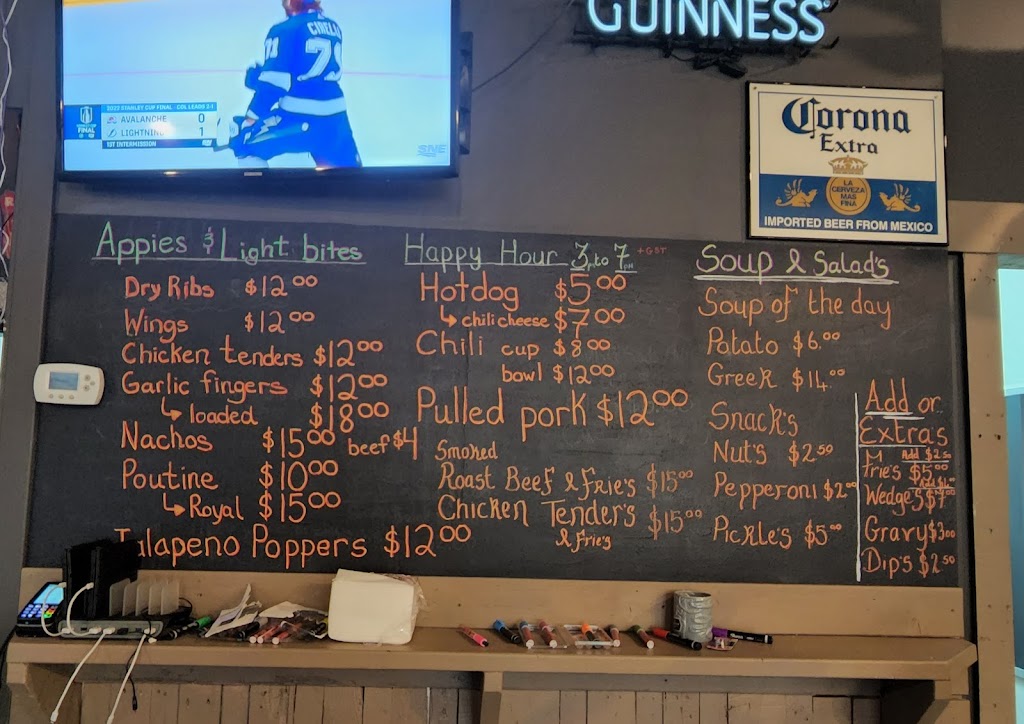 GUINNESS
CIRELLI
71
71
2022 STANLEY CUP FINAL COL LEADS 2-1
AVALANCHE 0
LIGHTNING 1
1ST INTERMISSION
FINAL
Corona
Extra
LA CERVEZA MAS FINA
IMPORTED BEER FROM MEXICO
Appies & Light bites
Dry Ribs $12.00
Wings $12.00
Chicken tenders $12.00
Garlic fingers $12.00
↳ loaded $18.00
Nachos $15.00 beef $4
Poutine $10.00
↳ Royal $15.00
Jalapeno Poppers $12.00
Happy Hour 3pm to 7pm +GST
Hotdog $5.00
↳ chili cheese $7.00
Chili cup $8.00
bowl $12.00
Pulled pork $12.00
Smoked
Roast Beef & Frie's $15.00
Chicken Tender's $15.00
& Frie's
Soup & Salad's
Soup of the day
Potato $6.00
Greek $14.00
Snack's
Nut's $2.50
Pepperoni $2.00
Pickle's $5.00
Add or
Extra's
M Add $2.50
Frie's $5.00
Wedge's $7.00
Gravy $3.00
Dip's $2.50